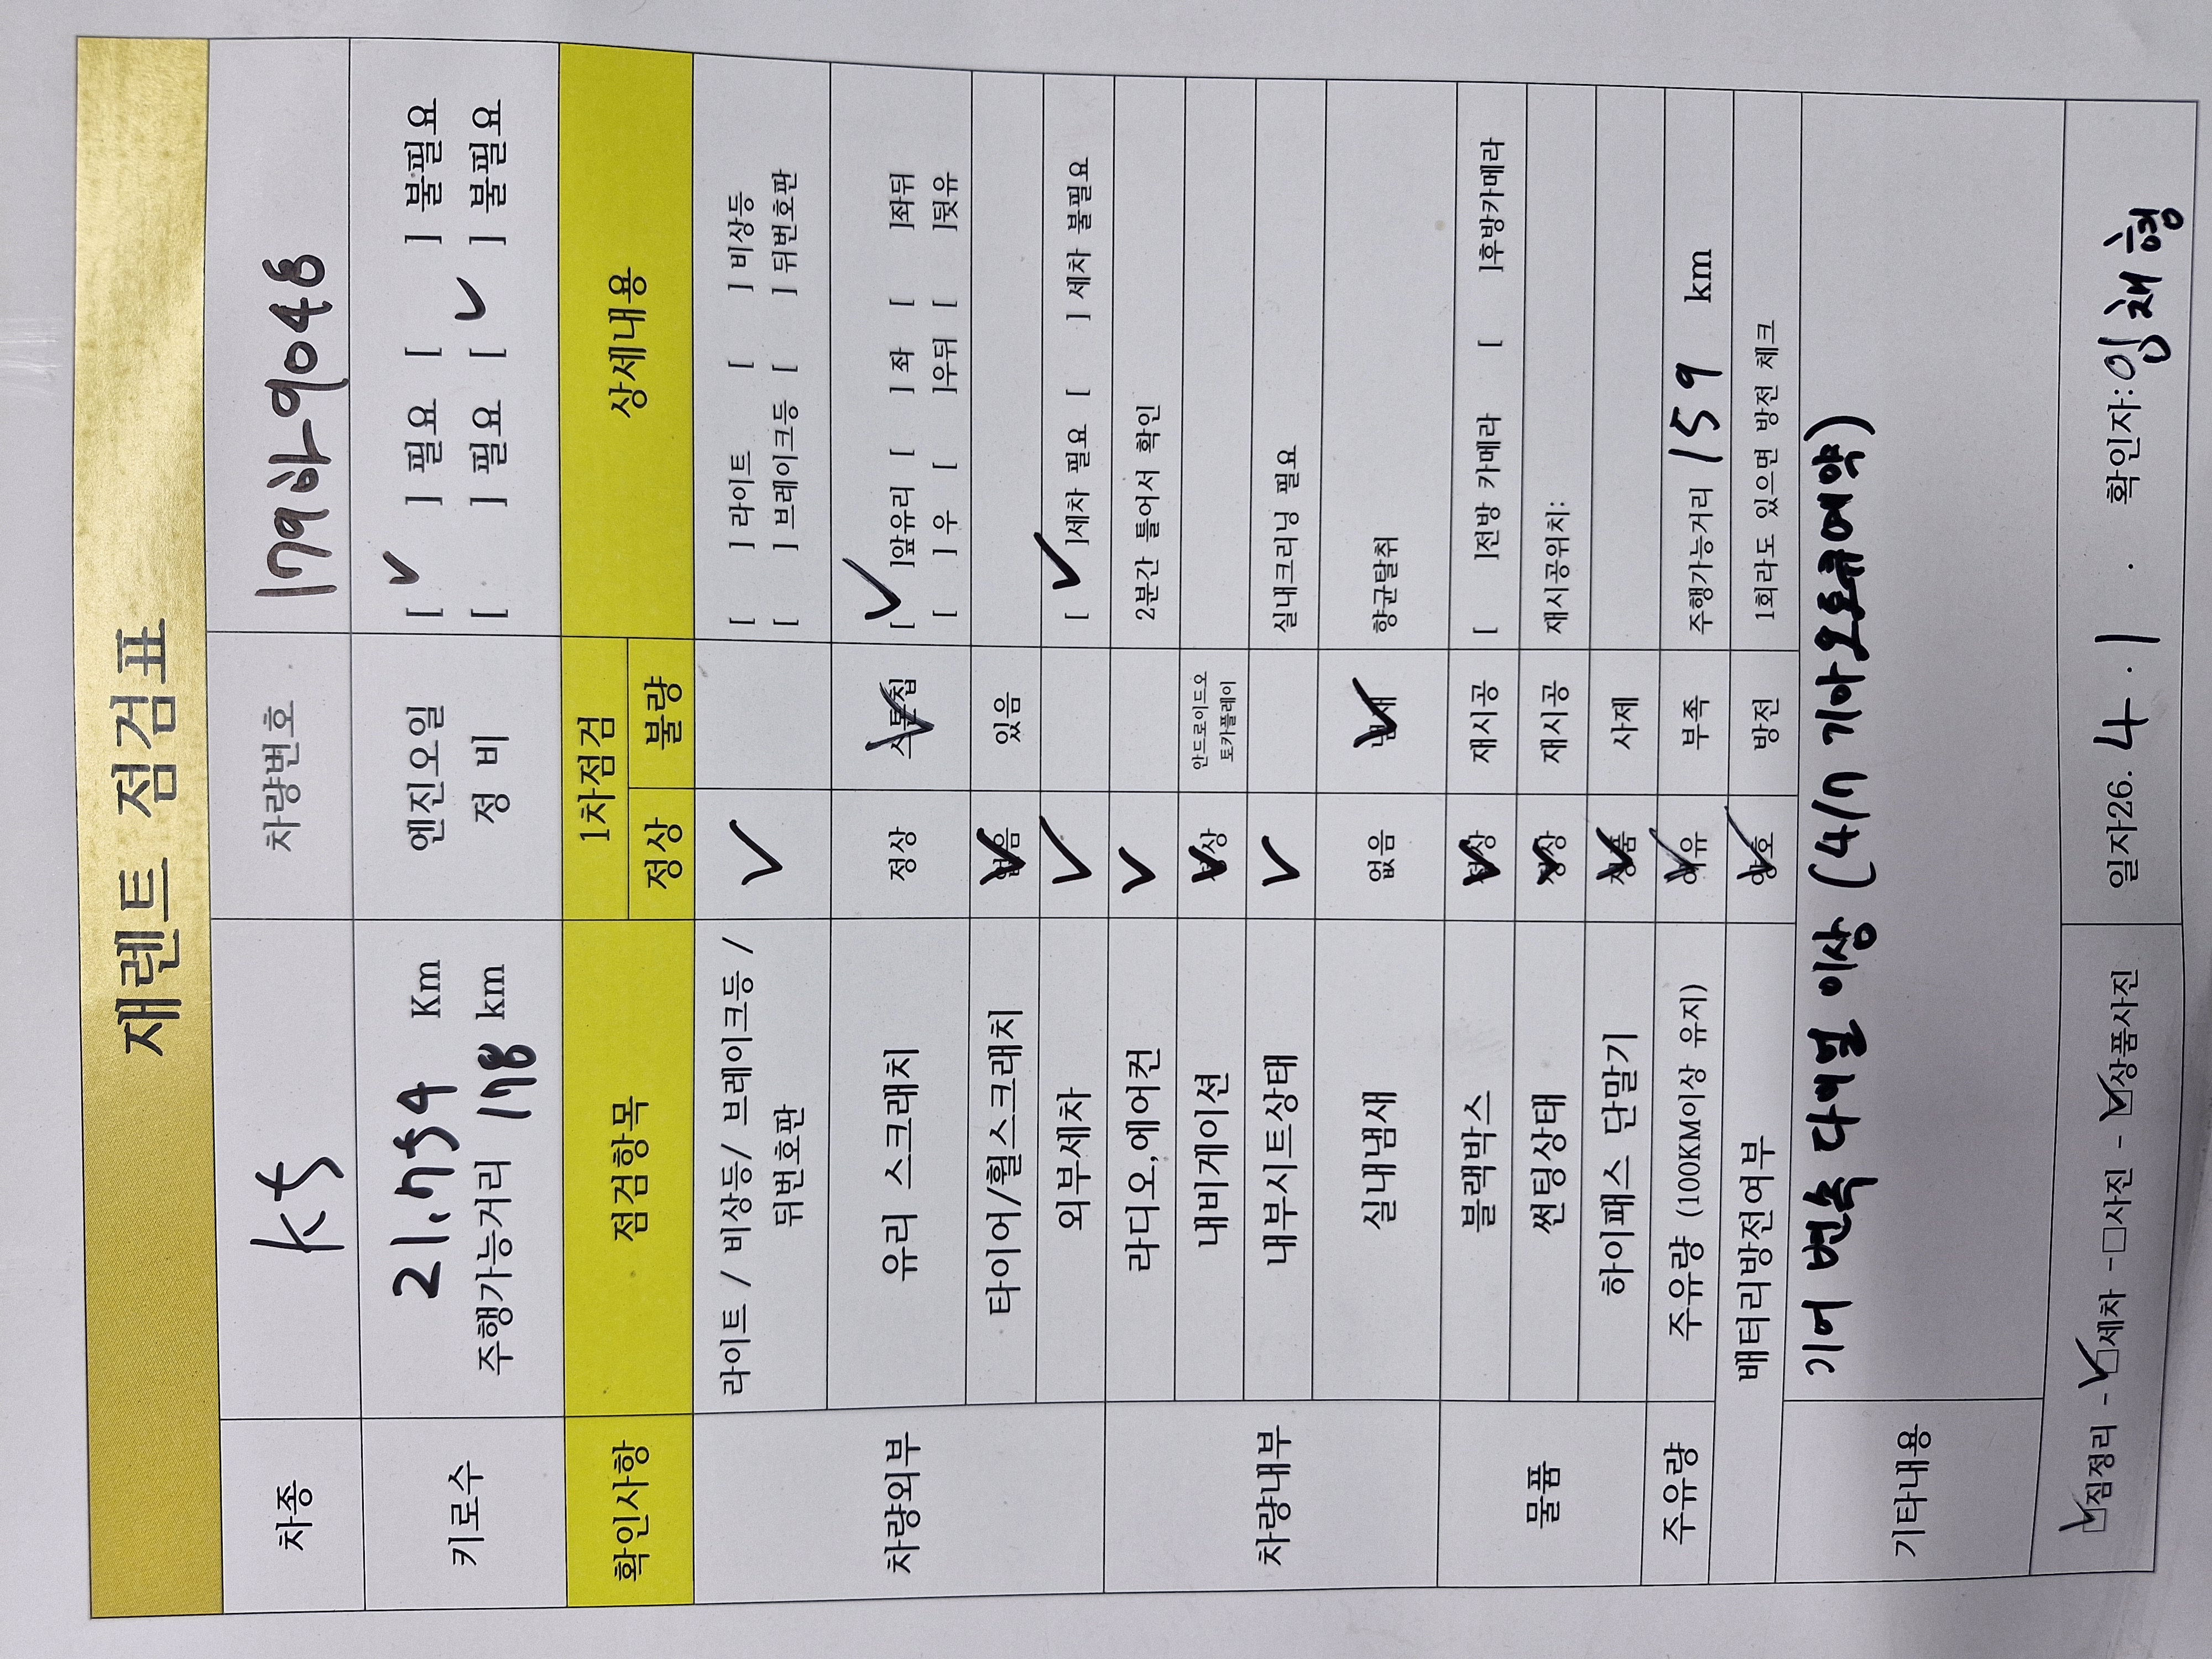 재렌트 점검표
차종 K5 차량번호 179하9048
키로수 21,754 Km 엔진오일 [ ✓ ] 필요 [ ] 불필요
주행가능거리 178 km 정 비 [ ] 필요 [ ✓ ] 불필요
확인사항 점검항목 1차점검 상세내용
정상 불량
차량외부 라이트 / 비상등/ 브레이크등 / ✓ [ ] 라이트 [ ] 비상등
뒤번호판 [ ] 브레이크등 [ ] 뒤번호판
유리 스크래치 정상 스톤칩 ✓ [ ✓ ]앞유리 [ ] 좌 [ ]좌뒤
[ ] 우 [ ]우뒤 [ ]뒷유
타이어/휠스크래치 없음 ✓ 있음
외부세차 ✓ [ ✓ ]세차 필요 [ ] 세차 불필요
차량내부 라디오,에어컨 ✓ 2분간 틀어서 확인
내비게이션 정상 ✓ 안드로이드오
토카플레이
내부시트상태 ✓ 실내크리닝 필요
실내냄새 없음 냄새 ✓ 향균탈취
물품 블랙박스 정상 ✓ 재시공 [ ]전방 카메라 [ ]후방카메라
썬팅상태 정상 ✓ 재시공 재시공위치:
하이패스 단말기 정품 ✓ 사제
주유량 주유량 (100KM이상 유지) 여유 ✓ 부족 주행가능거리 159 km
배터리방전여부 양호 ✓ 방전 1회라도 있으면 방전 체크
기타내용 기어 변속 다이얼 이상 (4/7 기아오토큐예약)
☑짐정리 - ☑세차 -□사진 - ☑상품사진 일자26. 4 . 1 . 확인자:임채형